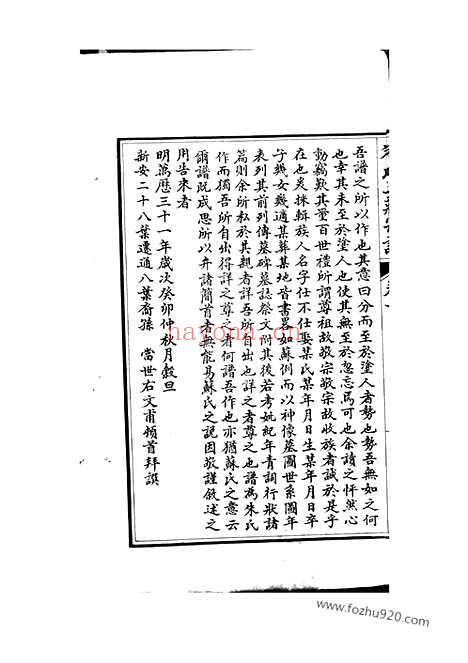 吾譜之所以作也其意曰分而至於塗人者勢也勢吾無如之何
也幸其未至於塗人也使其無至於忽忘焉可也余讀之怦然心
動竊歎其量百世禮所謂尊祖故敬宗敬宗故收族者誠於是乎
在也爰採輯族人名字仕不仕娶某氏某年月日生某年月日卒
子幾女幾適某葬某地皆書畧如蘇例而以神像墓圖世系圖年
表列其前列傳墓碑墓誌祭文附其後若考妣紀年青詞行狀諸
篇則余所私於其親者詳吾所自出也詳之者尊之也譜為朱氏
作而獨吾所自出得詳之尊之者何譜吾作也亦猶蘇氏之意云
爾譜既成思所以弁諸簡首者無能易蘇氏之說因敬謹敘述之
用告來者
明萬歷三十一年歲次癸卯仲秋月穀旦
新安二十八葉遷通八葉裔孫 當世右文甫頓首拜譔
hayona.cn
www.fozhu920.com